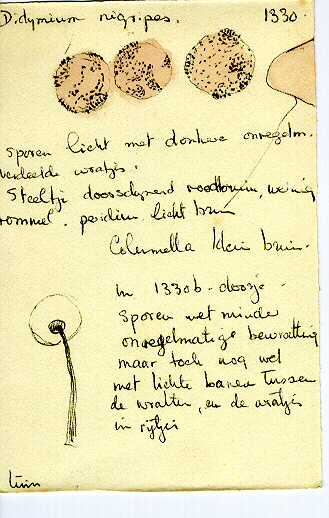 Didymium nigripes. 1330
sporen licht met donkere onregelm.
verdeelde wratjes.
Steeltje doorschijnend roodbruin, weinig
rommel. peridium licht bruin
Columella klein bruin.
in 1330b-doosje
sporen met minder
onregelmatige bewratting
maar toch nog wel
met lichte banen tussen
de wratten, en de wratjes
in rijtjes
tuin